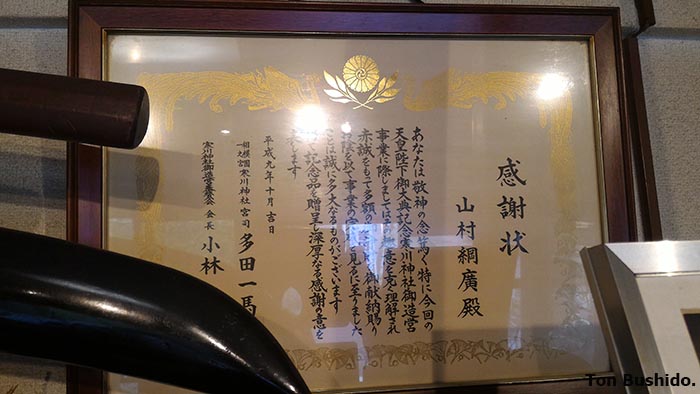 感謝状
山村綱廣殿
あなたは敬神の念篤く特に今回の
天皇陛下御大典記念寒川神社御造営
事業に際しましては意を克く理解され
赤誠をもて多額の御献納賜り
を以て事業の見るに至りました
は誠に多大なるものがございます
記念品を贈呈し深厚なる感謝の意を
します
平成九年十月吉日
相模國一之宮寒川神社宮司 多田一馬
寒川神社御造営 会長 小林
Ton Bushido.